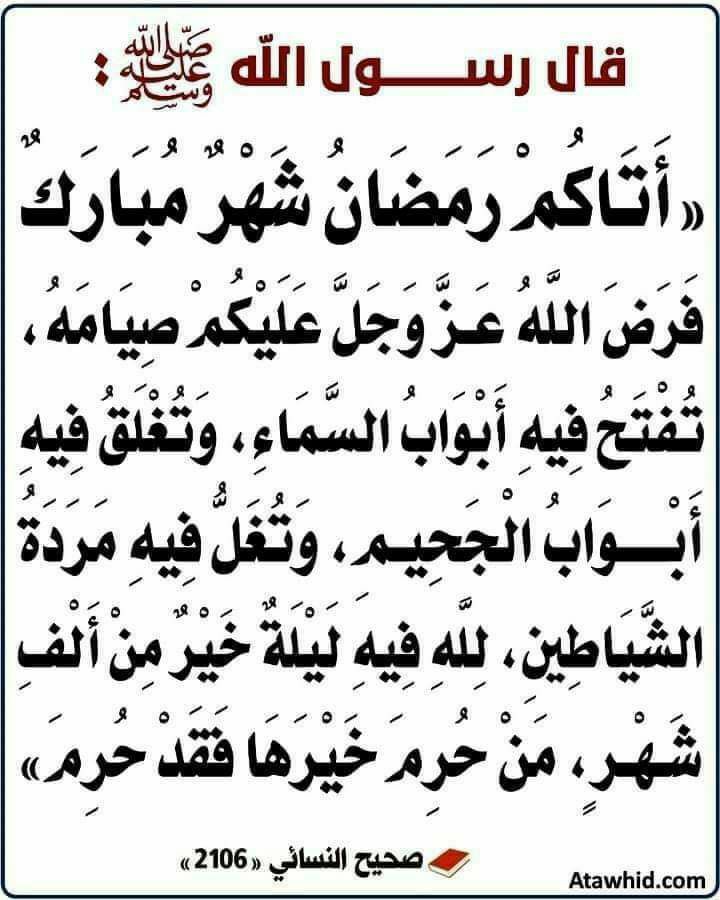 قال رســـول الله ﷺ :
«أَتَاكُمْ رَمَضَانُ شَهْرٌ مُبَارَكٌ
فَرَضَ اللَّهُ عَـزَّ وَجَلَّ عَلَيْكُمْ صِيَامَهُ ،
تُفْتَحُ فِيهِ أَبْوَابُ السَّمَاءِ ، وَتُغْلَقُ فِيهِ
أَبْـــوَابُ الْجَحِيـمِ ، وَتُغَلُّ فِيهِ مَرَدَةُ
الشَّيَاطِينِ ، لِلَّهِ فِيهِ لَيْلَةٌ خَيْرٌ مِنْ أَلْفِ
شَهْـرٍ ، مَنْ حُرِمَ خَيْرَهَا فَقَدْ حُرِمَ»
صحيح النسائي «2106»
Atawhid.com